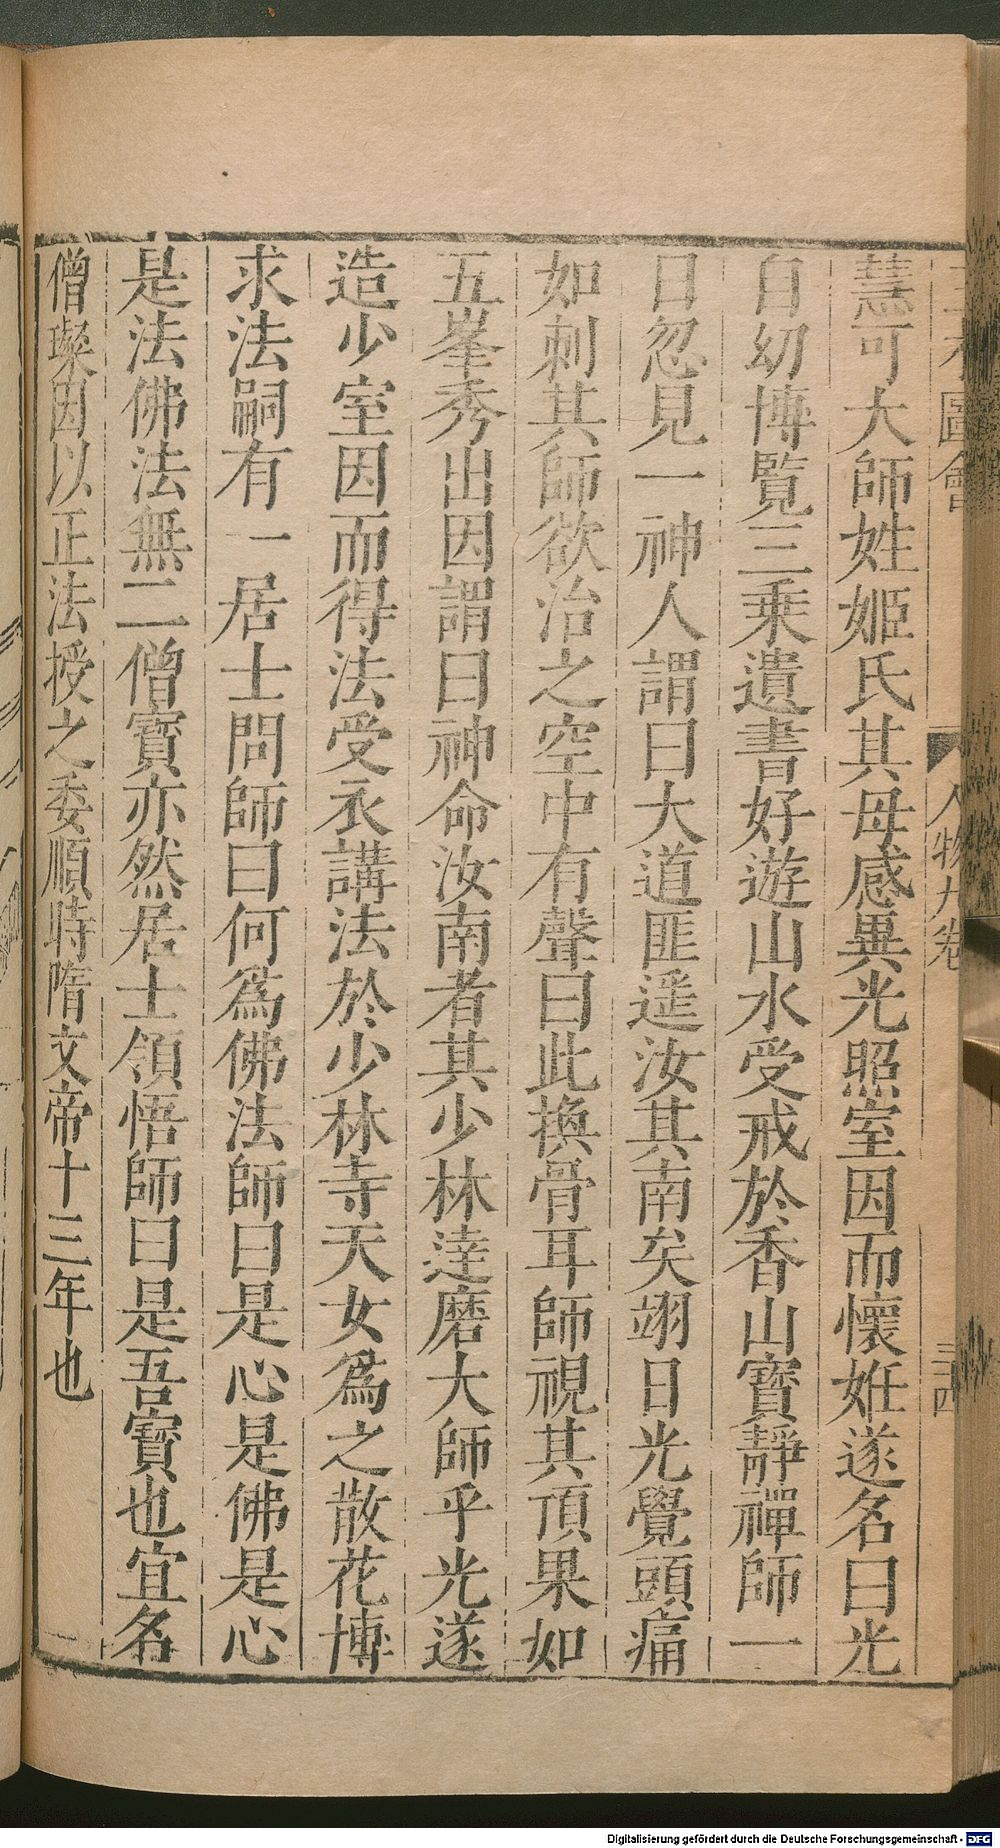 三才圖會
人物九卷
三十四
慧可大師姓姬氏其母感異光照室因而懷姙遂名曰光
自幼博覽三乘遺書好遊山水受戒於香山寶靜禪師一
日忽見一神人謂曰大道匪遥汝其南矣翊日光覺頭痛
如刺其師欲治之空中有聲曰此換骨耳師視其頂果如
五峯秀出因謂曰神命汝南者其少林達磨大師乎光遂
造少室因而得法受衣講法於少林寺天女為之散花博
求法嗣有一居士問師曰何爲佛法師曰是心是佛是心
是法佛法無二僧寶亦然居士領悟師曰是吾寶也宜名
僧璨因以正法授之委順時隋文帝十三年也
Digitalisierung gefördert durch die Deutsche Forschungsgemeinschaft - DFG